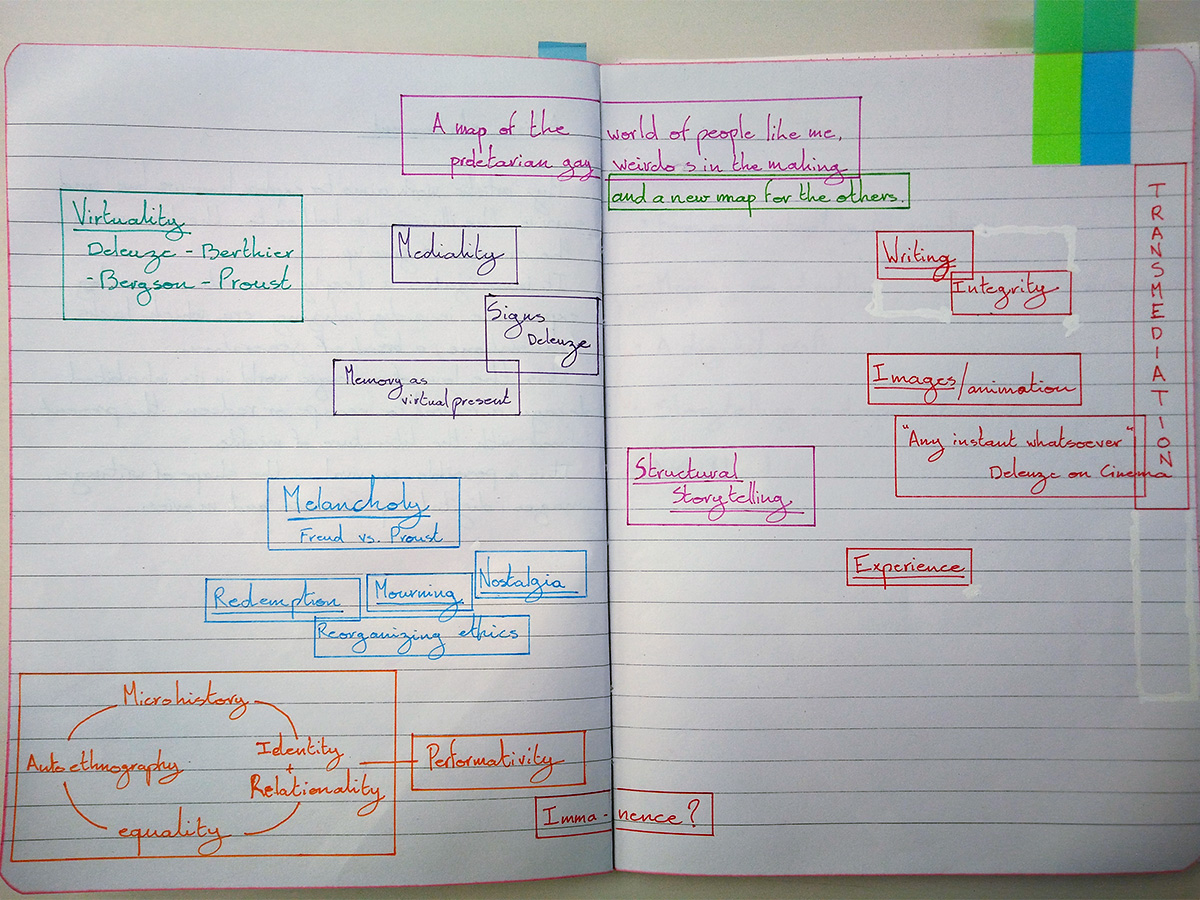 A map of the world of people like me,
proletarian gay weirdos in the making
and a new map for the others.
Virtuality
Deleuze - Berthier
- Bergson - Proust
Mediality
Signs
Deleuze
Memory as
virtual present
Melancholy
Freud vs. Proust
Nostalgia
Mourning
Redemption
Reorganizing ethics
Microhistory
Autoethnography
Identity
+
Relationality
equality
Performativity
Imma-nence?
Writing
Integrity
Images/animation
"Any instant whatsoever"
Deleuze on Cinema
Structural
Storytelling
Experience
TRANSMEDIATION